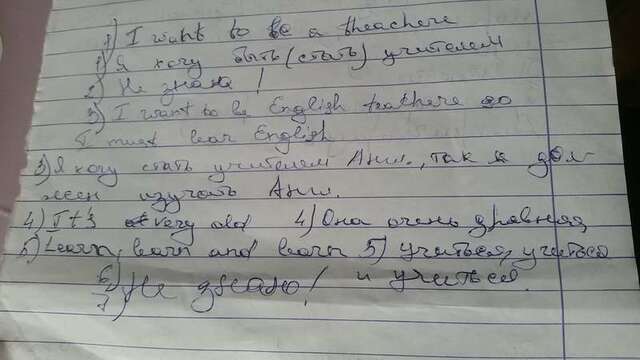 1) I want to be a theachere
1) Я хочу быть (стать) учителем
2) Не знаю!
3) I want to be English teachere so
I must lear English
3) Я хочу стать учителем Англ., так я дол-
жен изучать Англ.
4) It's very old 4) Она очень древняя,
5) Learn, learn and learn 5) учиться, учиться
и учиться.
6) Не